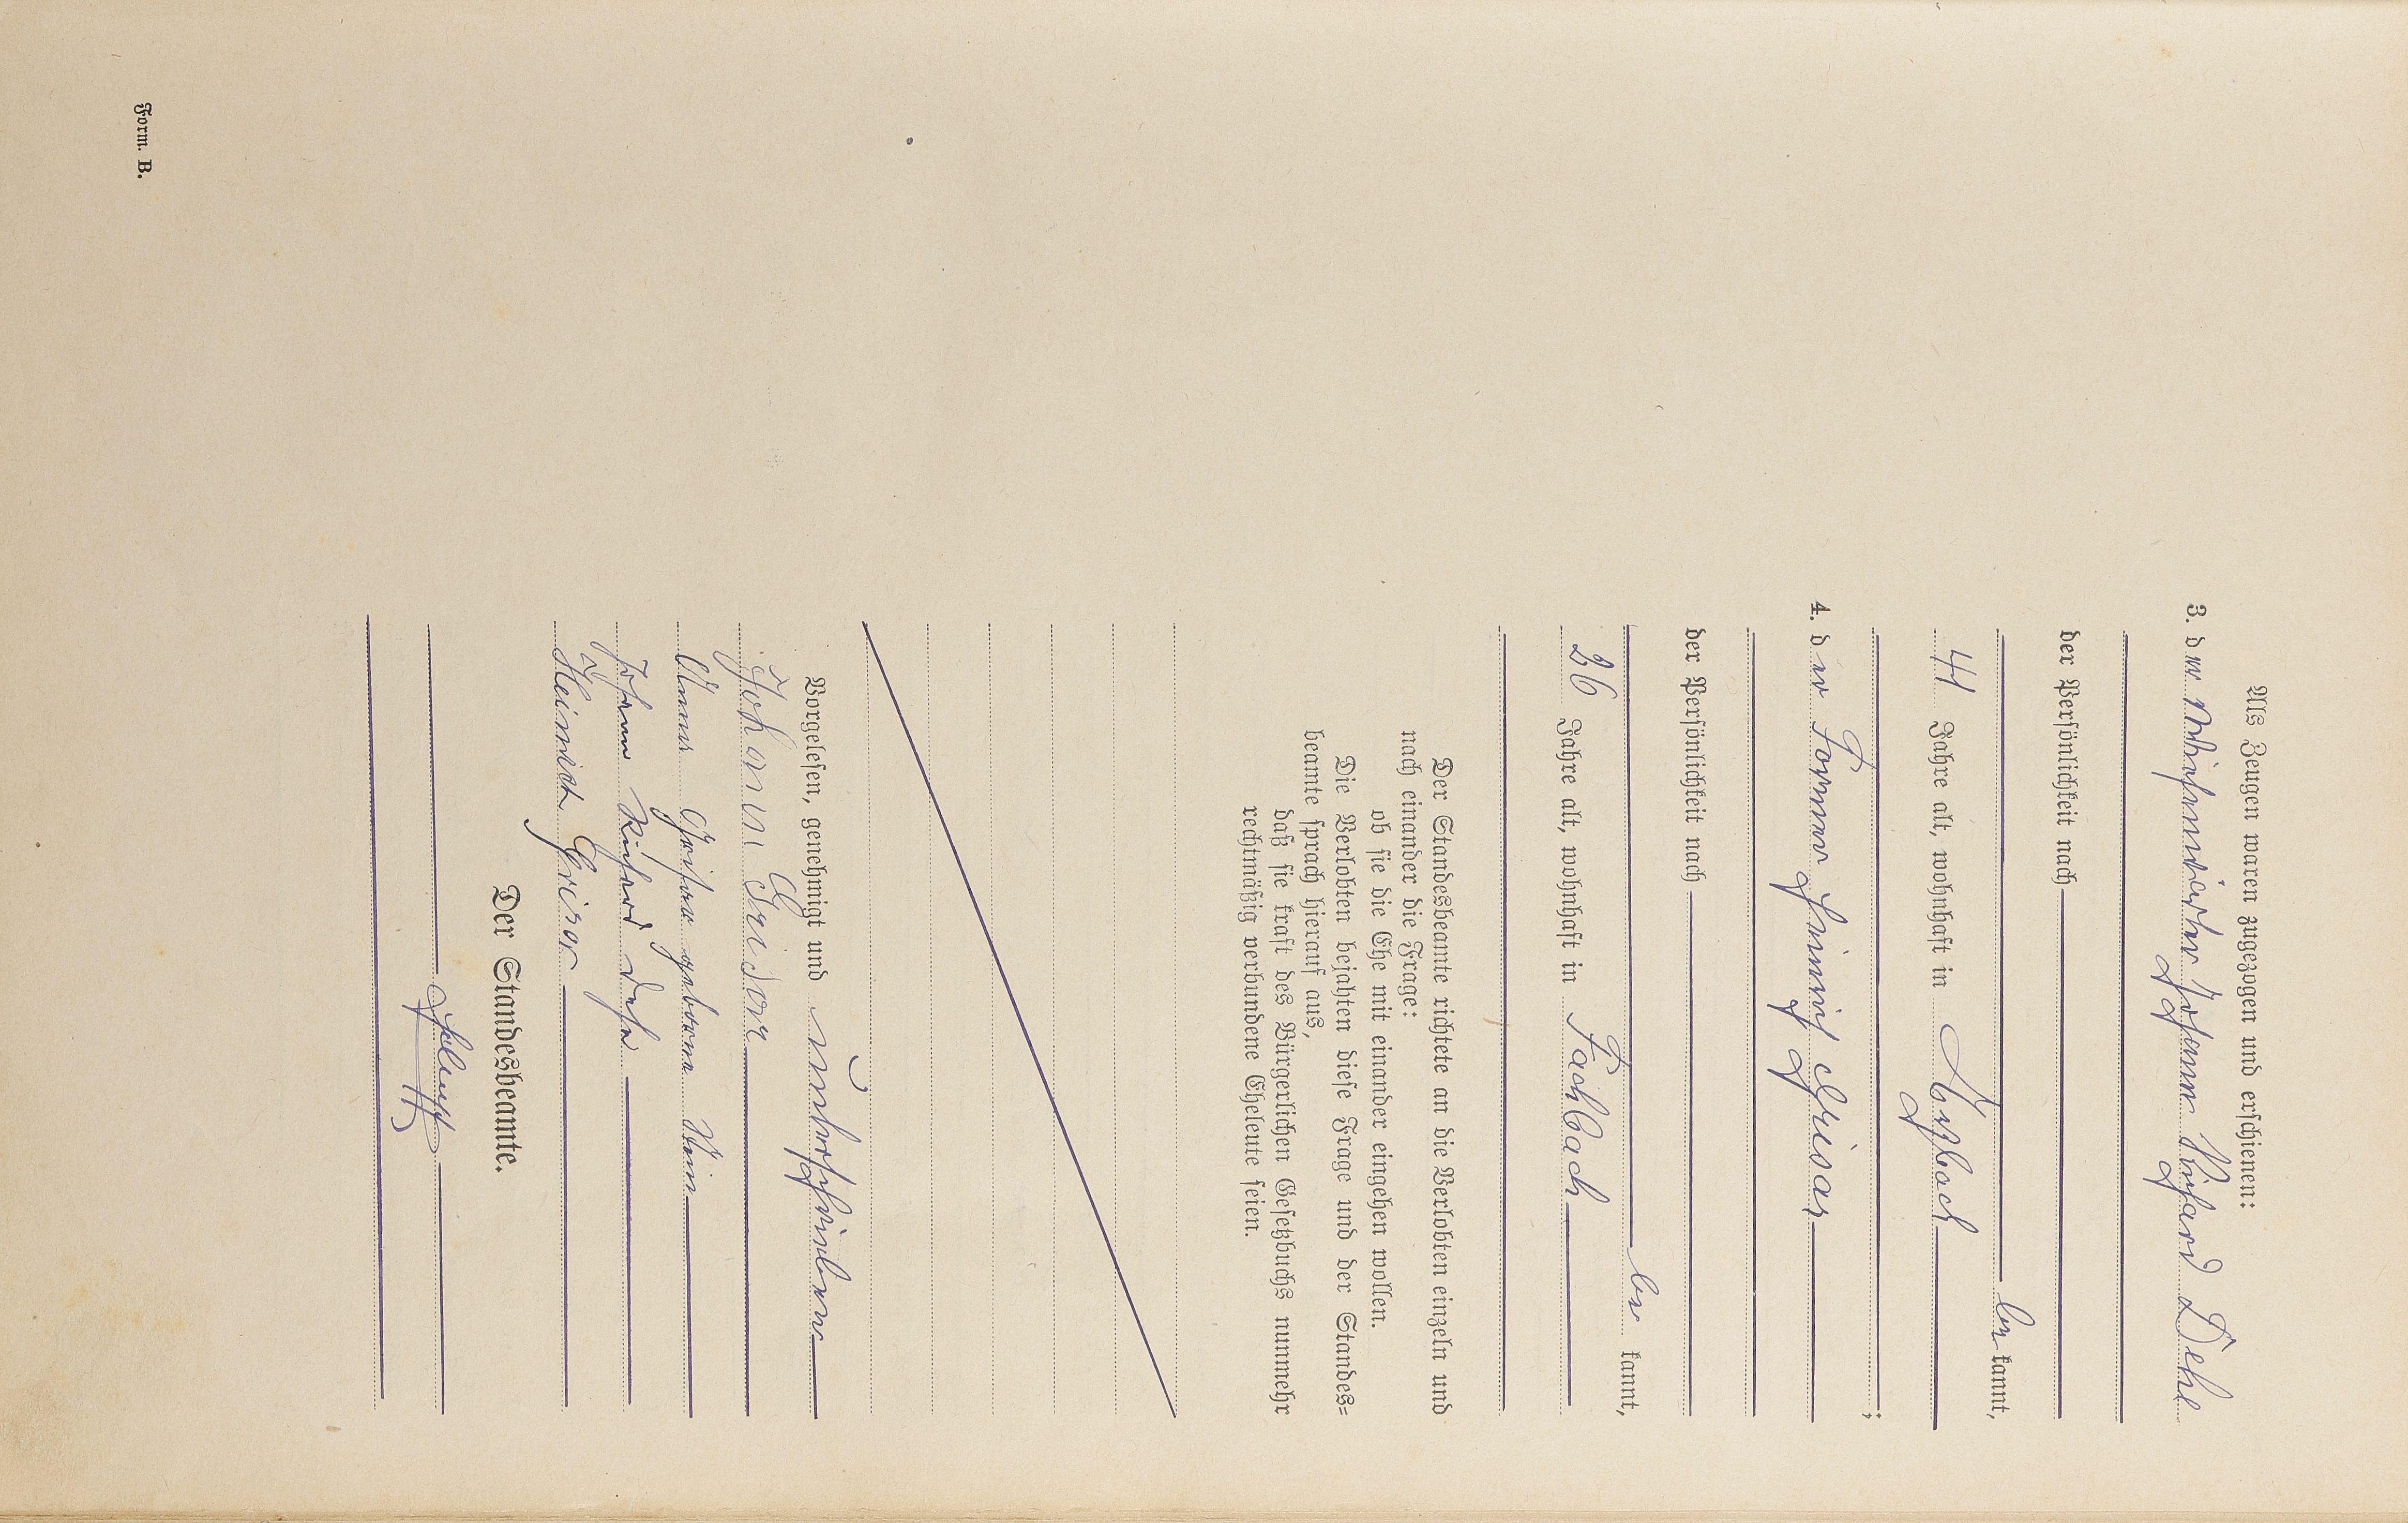 Als Zeugen waren zugezogen und erschienen:
3. der Johann Richard Dehe
der Persönlichkeit nach
be kannt,
41 Jahre alt, wohnhaft in
4. der Former Heinrich Grisar
;
der Persönlichkeit nach
be kannt,
26 Jahre alt, wohnhaft in Fachbach
Der Standesbeamte richtete an die Verlobten einzeln und
nach einander die Frage:
ob sie die Ehe mit einander eingehen wollen.
Die Verlobten bejahten diese Frage und der Standes=
beamte sprach hierauf aus,
daß sie kraft des Bürgerlichen Gesetzbuchs nunmehr
rechtmäßig verbundene Eheleute seien.
Vorgelesen, genehmigt und unterschrieben
Johann Grisar
Anna Grisar geborene
Johann Richard Dehe
Heinrich Grisar
Der Standesbeamte.
Form. B.